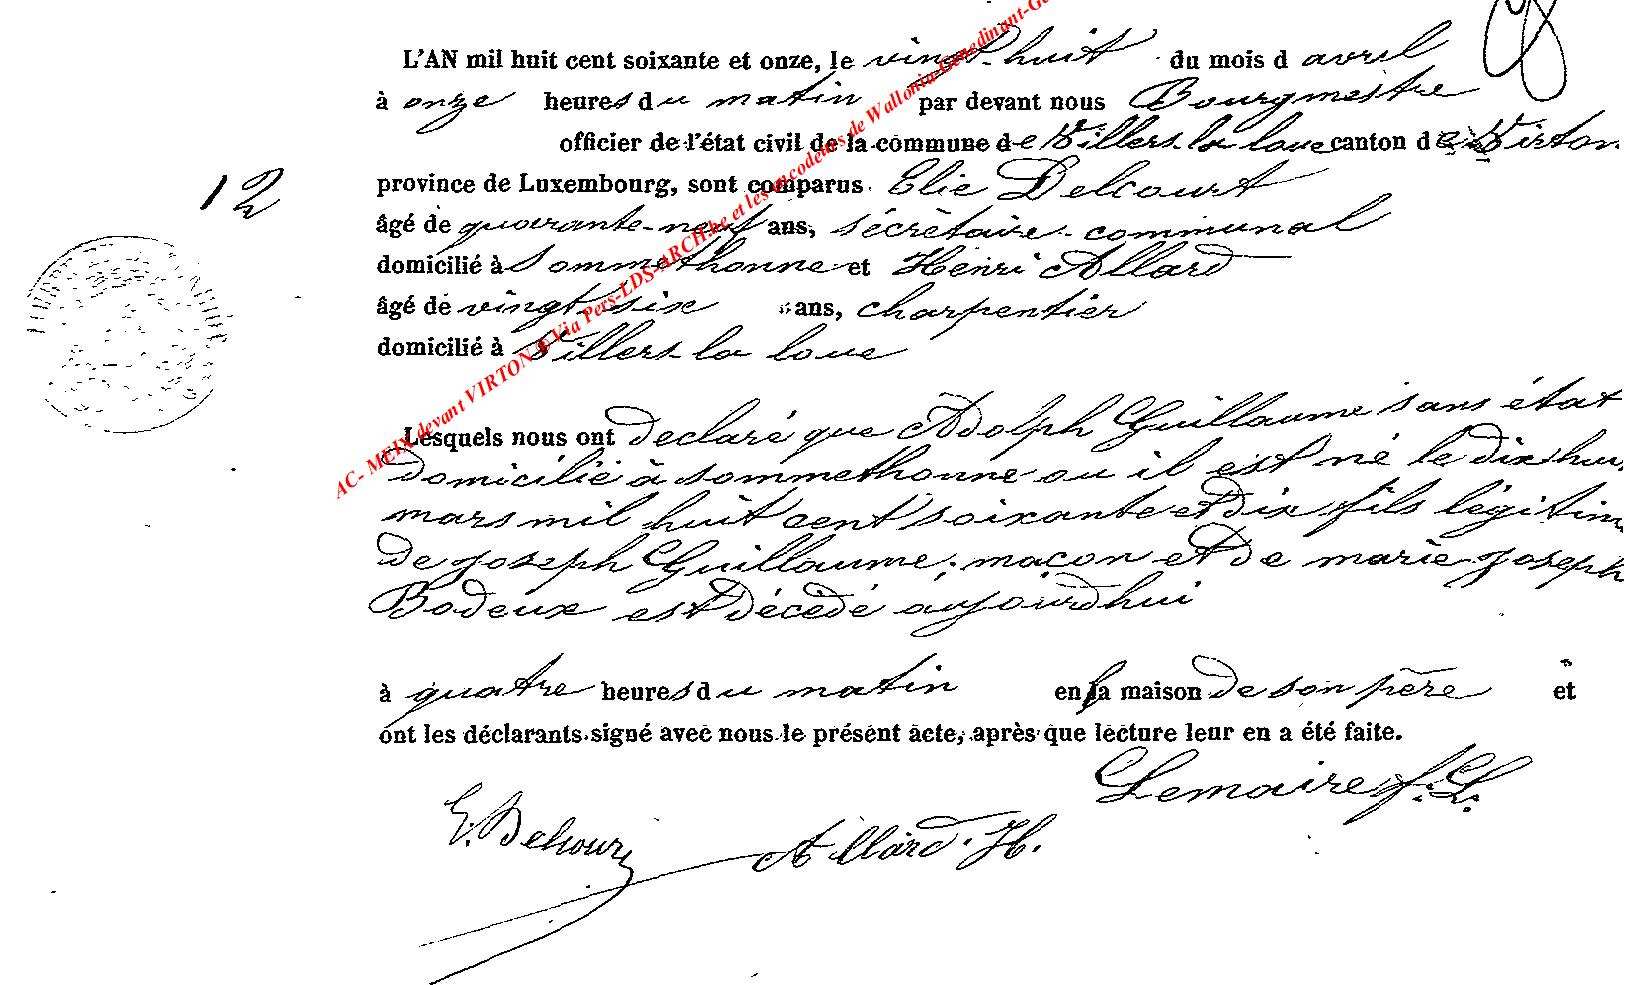 L'AN mil huit cent soixante et onze, le vingt-huit du mois d avril
à onze heures du matin par devant nous Bourgmestre
officier de l'état civil de la commune de Villers-la loue canton de Virton
12
province de Luxembourg, sont comparus Elie Delcourt
âgé de quarante-neuf ans, sécrètaire-communal
domicilié à Sommethonne et Henri Allard
âgé de vingt-six ans, charpentier
domicilié à Villers-la loue
Lesquels nous ont declaré que Adolph Guillaume sans état
domicilié à sommethonne ou il est né le dix hui
mars mil huit cent soixante et dix fils légitim
de joseph Guillaume, maçon et de marie-joseph
Bodeux est décédé aujourd'hui
à quatre heures du matin en la maison de son père et
ont les déclarants signé avec nous le présent acte, après que lecture leur en a été faite.
Lemaire f.L.
E. Delcourt Allard. H.
AC- MEIX devant VIRTON Via Pers-LDS-ARCH.be et les encodeurs de Wallonia-Genedinant-Ge